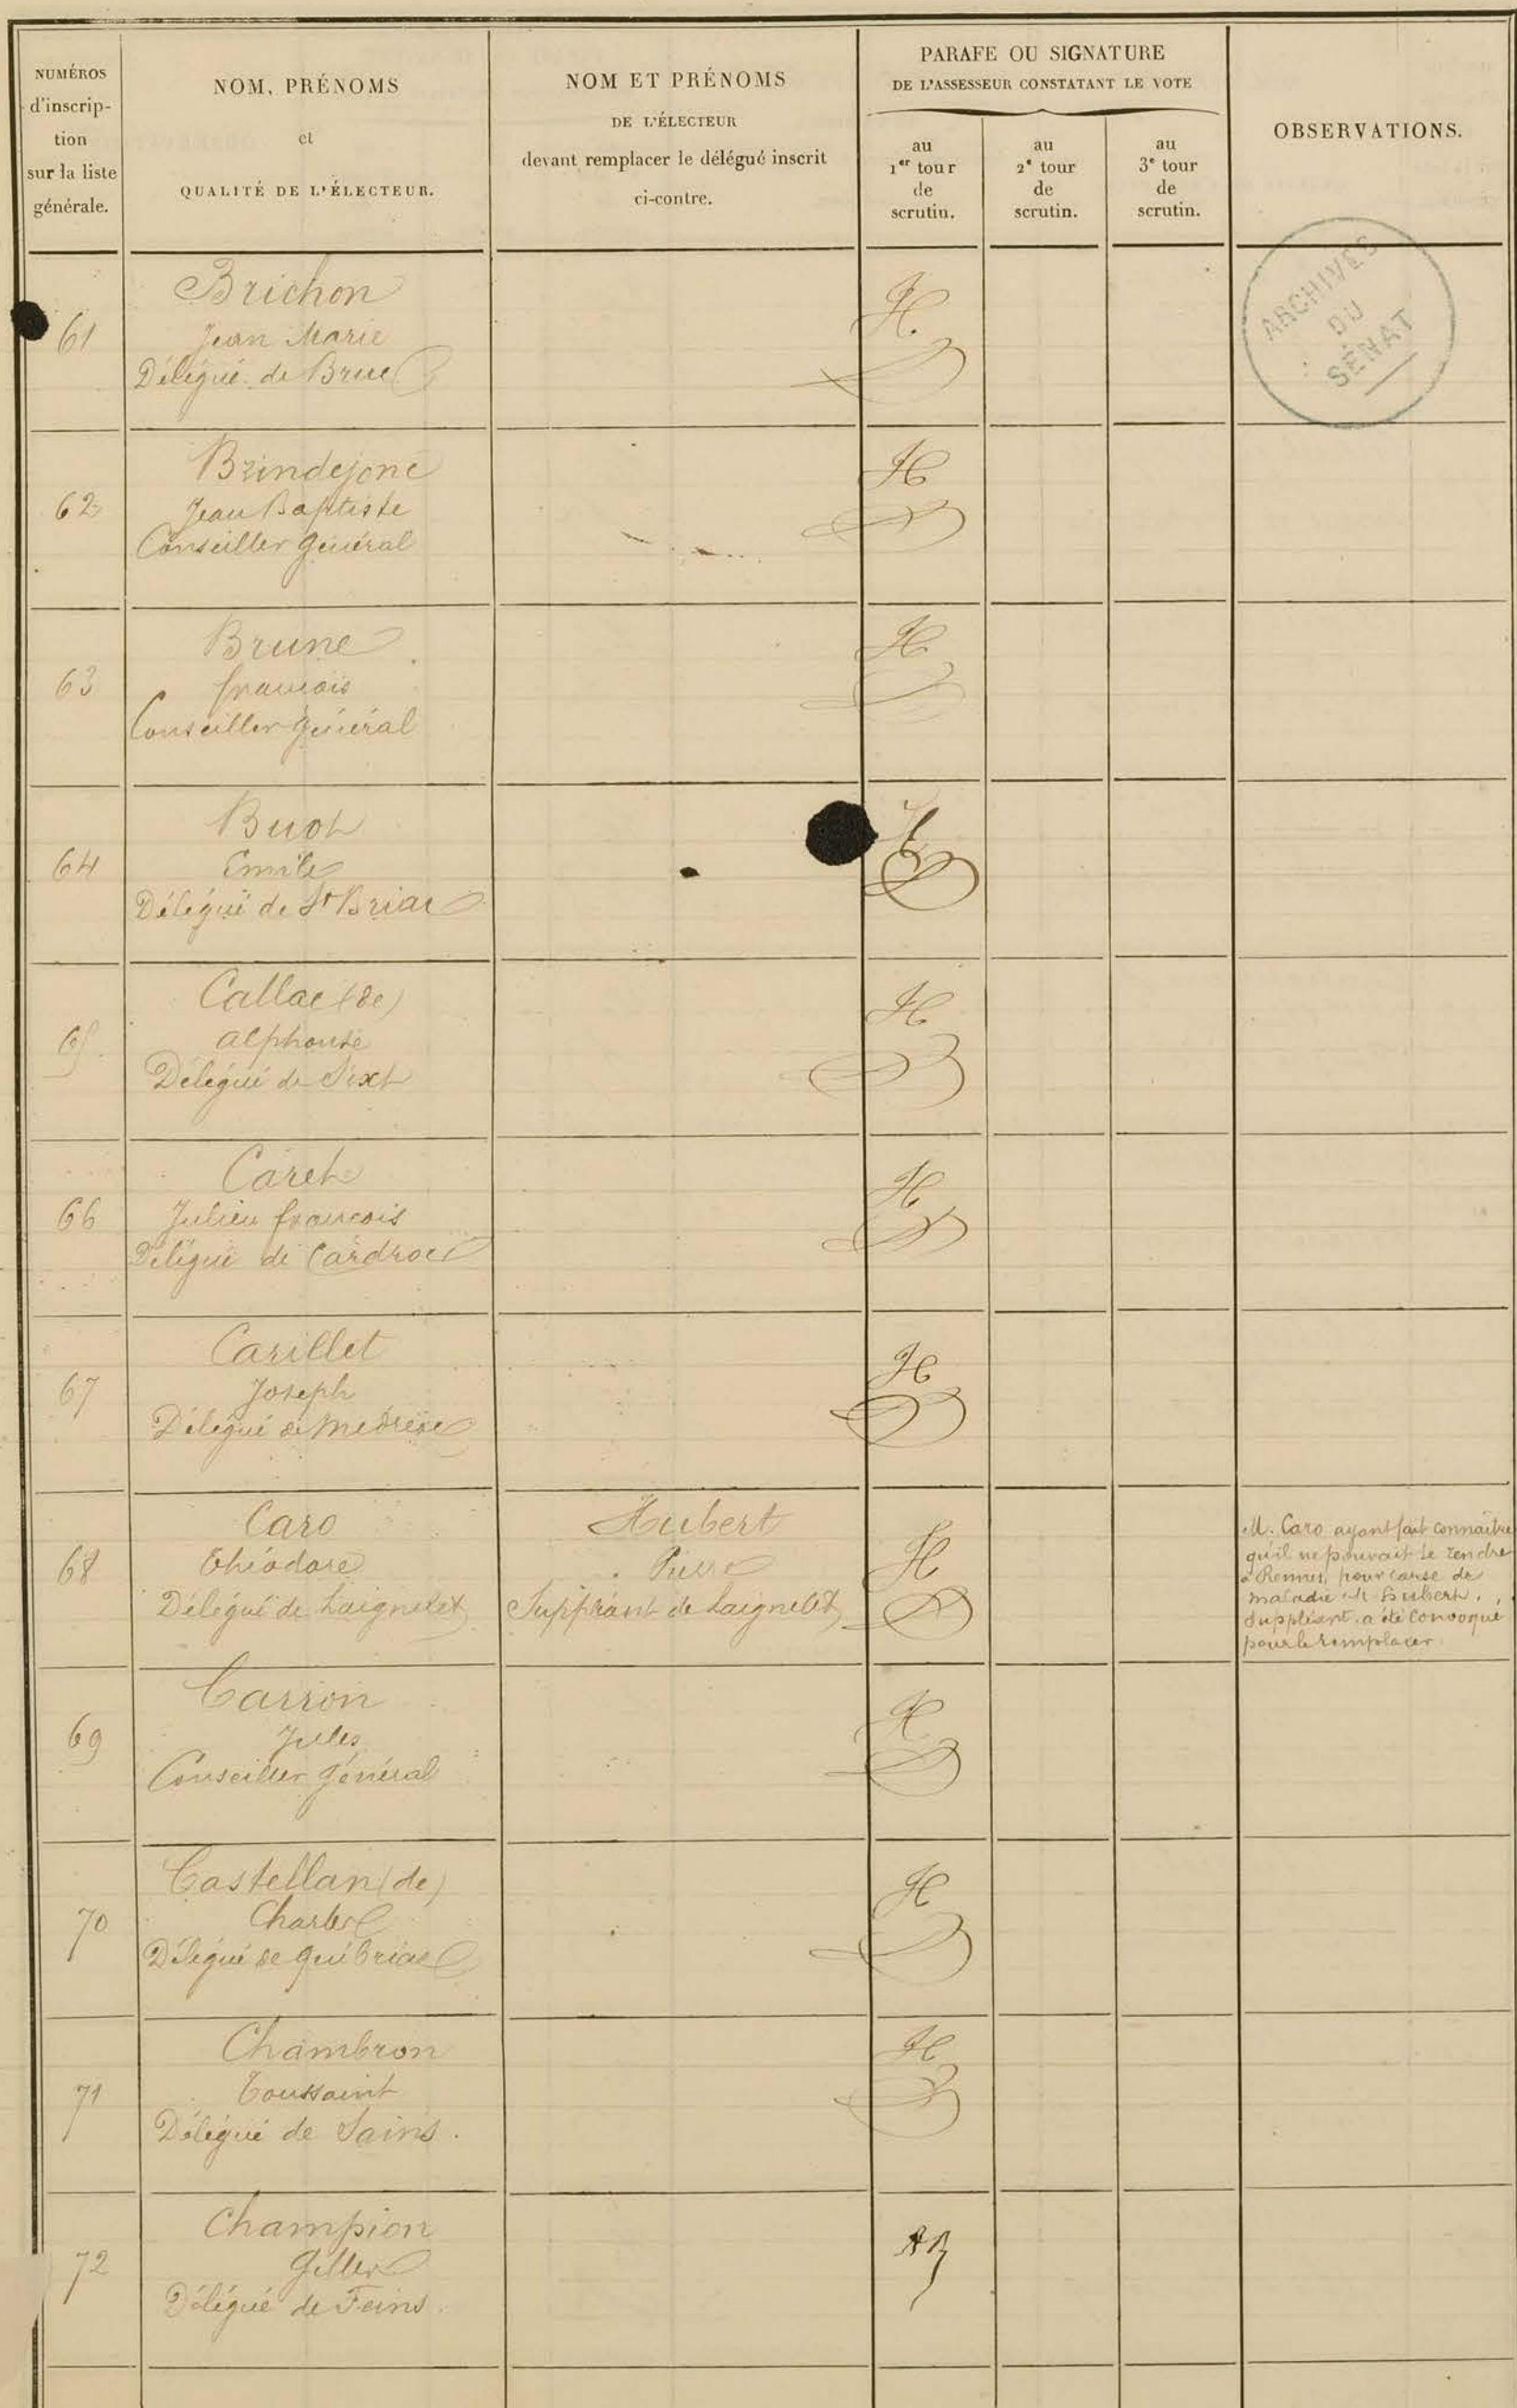 NUMÉROS
d'inscrip-
tion
sur la liste
générale.
NOM, PRÉNOMS
et
QUALITÉ DE L'ÉLECTEUR.
NOM ET PRÉNOMS
DE L'ÉLECTEUR
devant remplacer le délégué inscrit
ci-contre.
PARAFE OU SIGNATURE
DE L'ASSESSEUR CONSTATANT LE VOTE
au
1er tour
de
scrutin.
au
2e tour
de
scrutin.
au
3e tour
de
scrutin.
OBSERVATIONS.
ARCHIVES
DU
SÉNAT
61
Brichon
Jean Marie
Délégué de Bruc
H
62
Brindejonc
Jean Baptiste
Conseiller général
H
63
Brune
françois
Conseiller général
H
64
Buot
Emile
Délégué de St Briac
H
65
Callac (de)
Alphonse
Délégué de Sixt
H
66
Caret
Julien françois
Délégué de Cardroc
H
67
Carillet
Joseph
Délégué de Médréac
H
68
Caro
Théodore
Délégué de Laignelet
Hubert
Pierre
Suppléant de Laignelet
H
M. Caro ayant fait connaître
qu'il ne pouvait se rendre
à Rennes, pour cause de
maladie M Hubert,
suppléant a été convoqué
pour le remplacer
69
Carron
Jules
Conseiller général
H
70
Castellan (de)
Charles
Délégué de Québriac
H
71
Chambron
Toussaint
Délégué de Sains.
H
72
Champion
Gilles
Délégué de Feins.